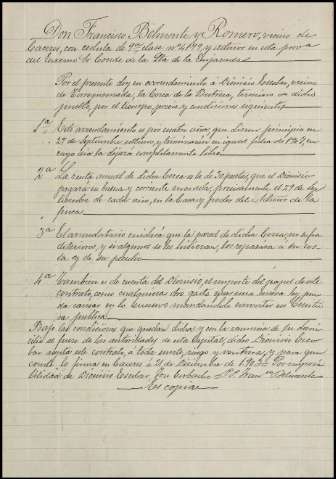 Don Francisco Belmonte y Romero, vecino de
Cáceres, con cédula de 9ª clase nº 4192, y estivo en esta prova
del Excmo Sr Conde de la de la Encarnada
Por el presente doy en arrendamiento a Dionisio Escobar, vecino
de Torrequemada, la Cerca de la termino de dicho
pueblo, por el tiempo, precio y condiciones siguientes
1ª Este arrendamiento es por cuatro años, que dieron principio en
29 de Septiembre y terminarán en igual fecha de 190
en cuyo día la dejará completamente libre
2ª La renta anual de dicha Cerca es la de 30 pesetas, que el Dionisio
pagará en buena y corriente moneda, precisamente el 29 de Sep
tiembre de cada año, en la Casa y poder del Admor de la
finca
3ª El arrendatario cuidará que la pared de dicha Cerca, no sufra
deterioro, y si alguno se les hicieran, los reparará a su cos
ta y de su
4ª También es de cuenta del Dionisio, el importe del papel de este
contrato, como cualquiera otro gasto que una nueva ley pu
eda causar en lo sucesivo mandándole convertir en Escritu
ra publica
Bajo las condiciones que quedan dichas y en la renuncia de su domi
cilio al fuero de las autoridades de esta Capital, dicho Dionisio Esco
bar acepta este contrato, a todo evento, riesgo y ventura, y para que
conste lo firma en Cáceres á de Diciembre de 1903= Por
de Dionisio Escobar, = P. P. Franco Belmonte
Es copia